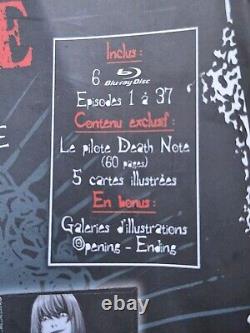 E
Inclus :
6 Blu-ray Disc
Episodes 1 à 37
Contenu exclusif :
E
Le pilote Death Note
(60 pages)
5 cartes illustrées
En bonus :
Galeries d'illustrations
Opening - Ending